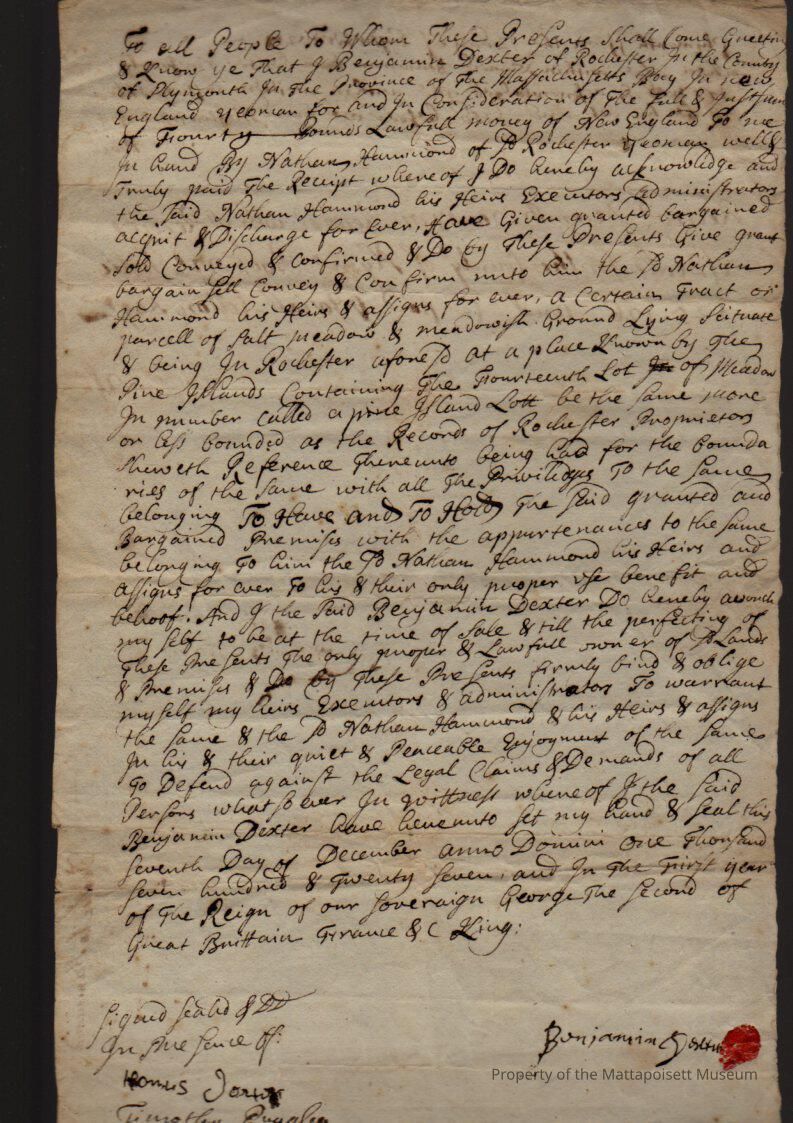 To all People To Whom These Presents Shall Come Greeting
& Know ye That I Benjamin Dexter of Rochester In the County
of Plymouth In The Province of The Massachusetts Bay In new
England yeoman for and In Consideration of The full & Just sum
of Fourty Pounds Lawfull money of New England To me
In hand By Nathan Hammond of sd Rochester yeoman well &
Truly paid The Receipt whereof I Do hereby acknowledge and
the said Nathan Hammond his Heirs Executors administrators
acquit & Discharge for Ever, Have Given granted bargained
sold Conveyed & confirmed & Do by These Presents Give grant
bargain sell Convey & Confirm unto him the sd Nathan
Hammond his Heirs & assigns for ever, a Certain Tract or
parcell of salt meadow & meadowish Ground Lying Scituate
& being In Rochester afore sd at a place Known by The
Pine Islands Containing The Fourteenth Lot of Meadow
In number called a pine Island Lott be the same more
or less bounded as the Records of Rochester Proprietors
sheweth Reference Thereunto being had for the bounda
ries of the same with all The Priviledges To the same
belonging To Have and To Hold The said granted and
Bargained Premises with the appurtenances to the same
belonging To him the sd Nathan Hammond his Heirs and
assigns for ever To his & their only proper use benefit and
behoof. And I the said Benjamin Dexter Do hereby avouch
my self to be at the time of sale & till the perfecting of
These Presents The only proper & Lawfull owner of sd Lands
& Premises & Do by These Presents firmly bind & oblige
myself my heirs Executors & administrators To warrant
the same & the sd Nathan Hammond & his Heirs & assigns
In his & their quiet & Peaceable Enjoyment of the same
To Defend against the Legal Claims & Demands of all
Persons whatsoever In wittness whereof I the said
Benjamin Dexter have hereunto set my hand & seal this
Seventh Day of December anno Domini one Thousand
seven hundred & Twenty seven, and In The First year
of The Reign of our Soveraign George The Second of
Great Brittain France &C King:
Signed sealed & DD
In Presence of:
Benjamin Dexter
Property of the Mattapoisett Museum
Timothy